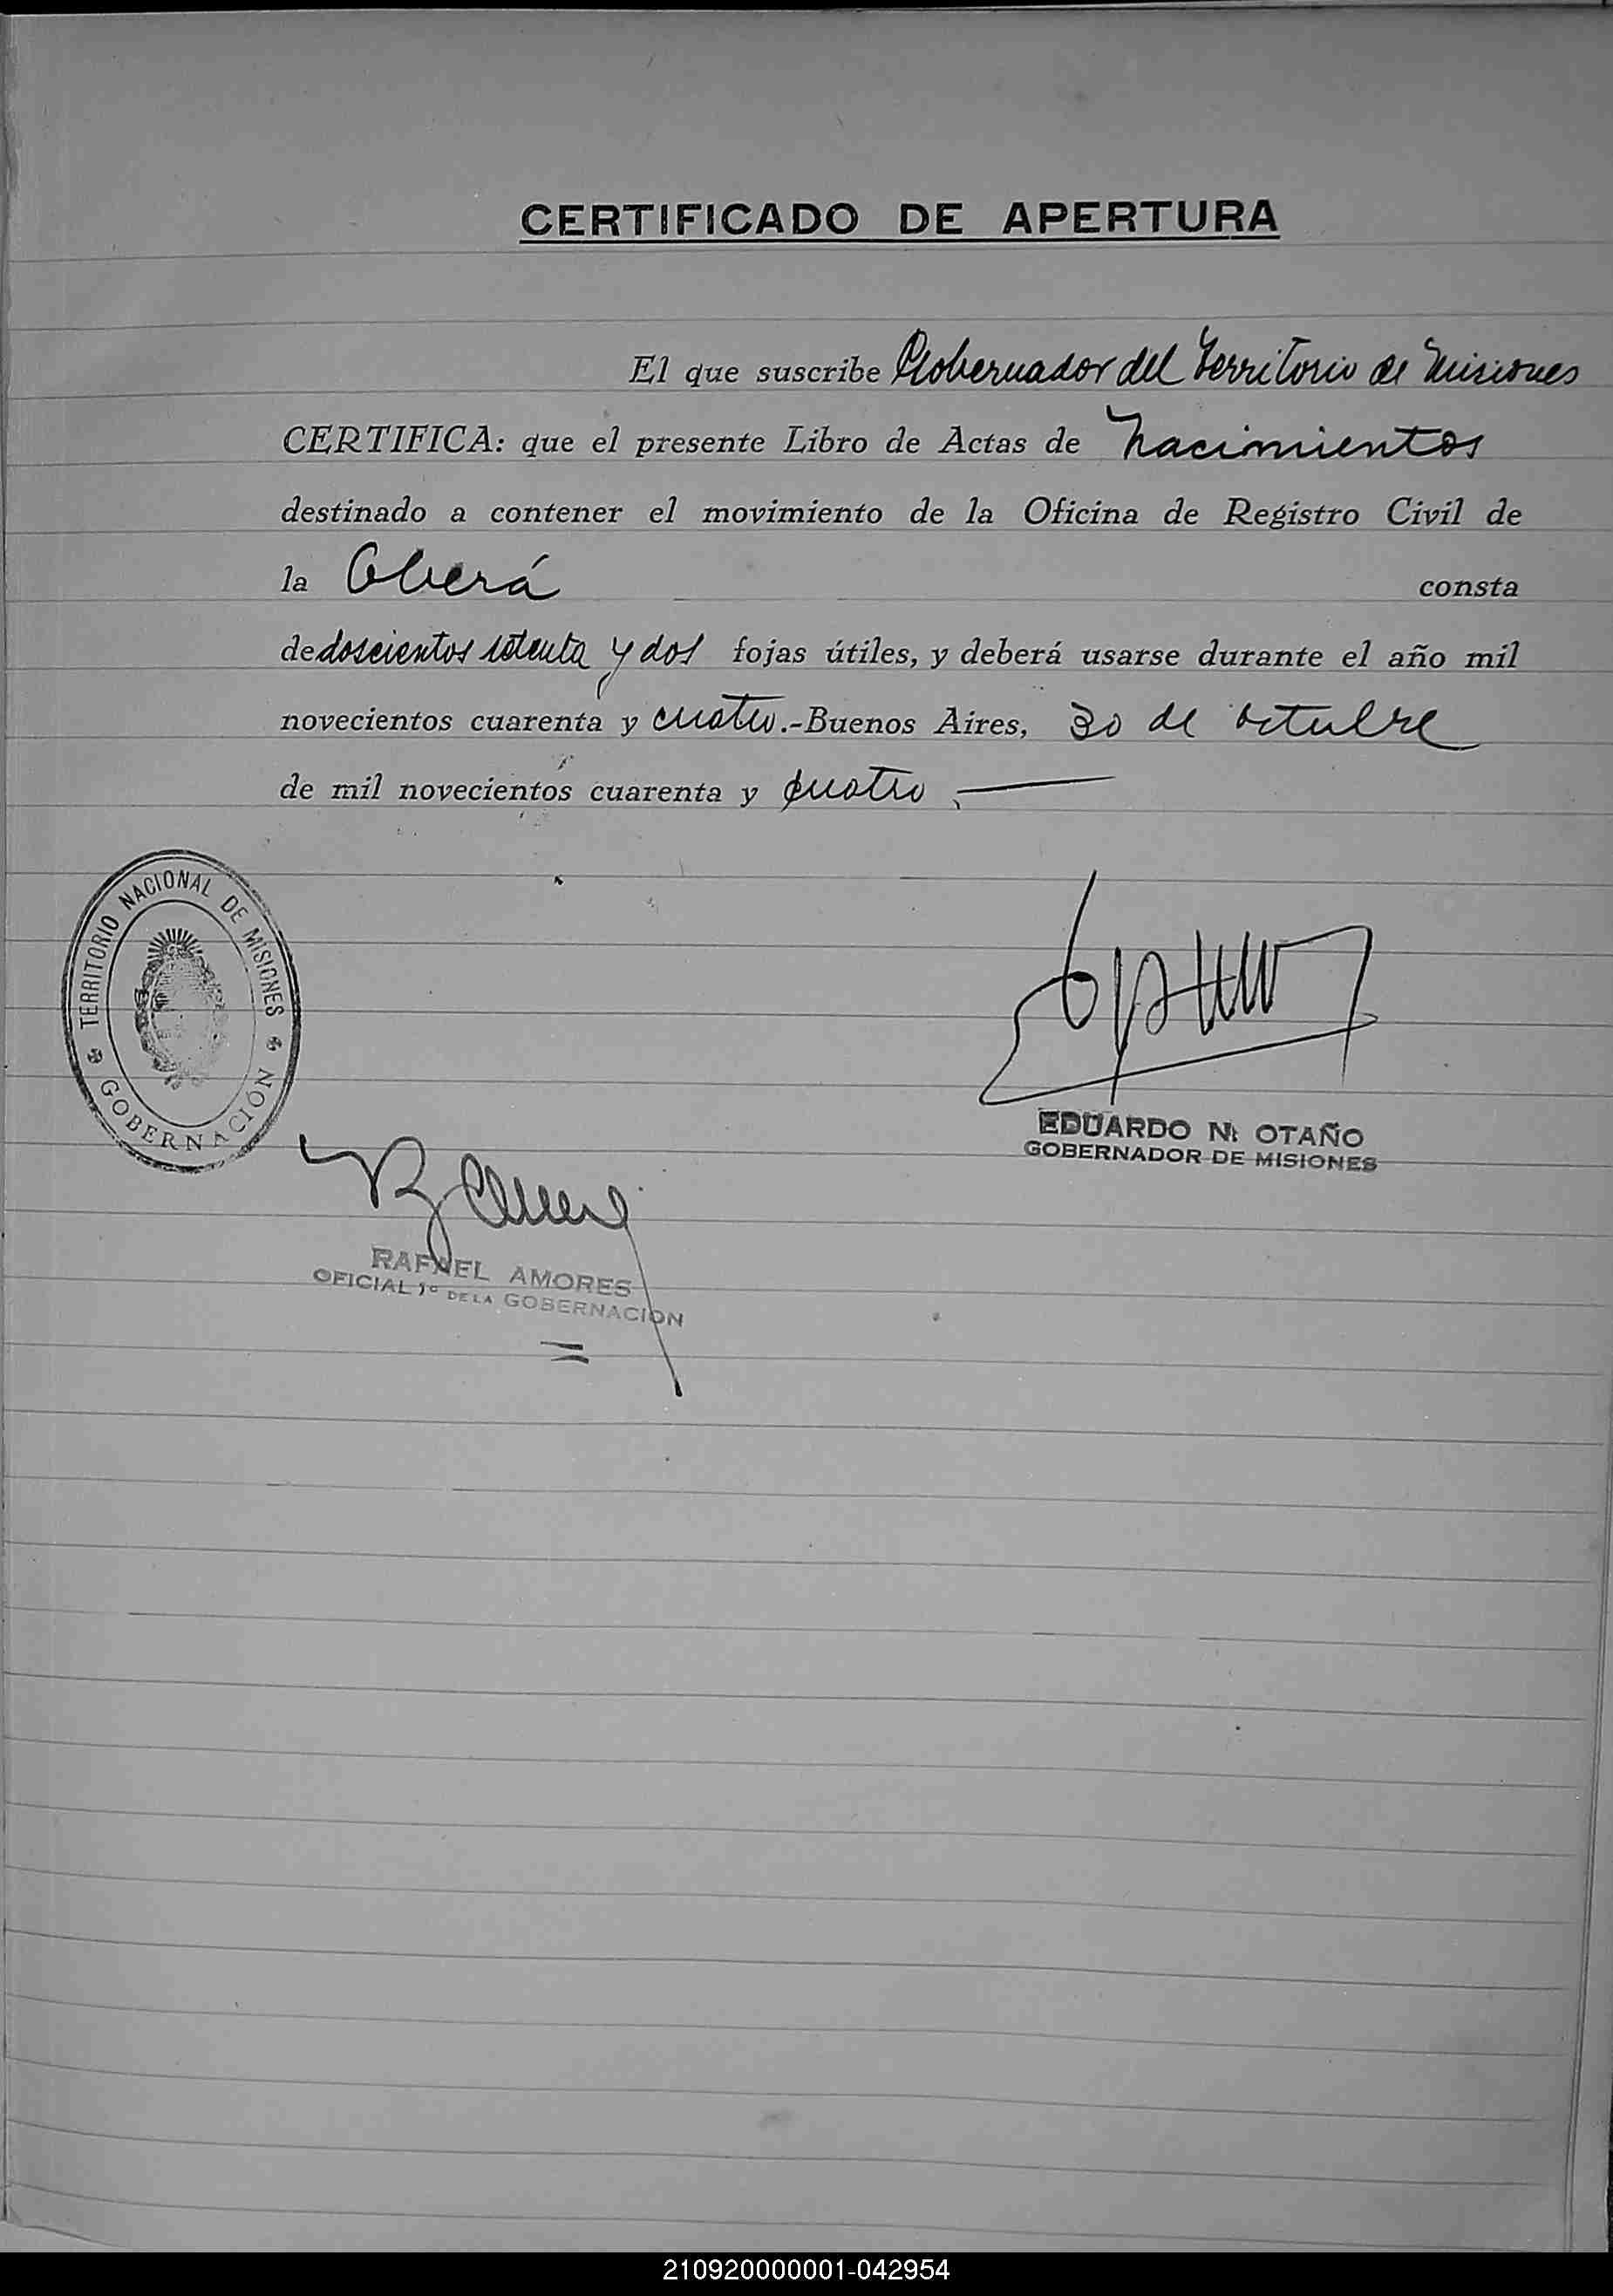 CERTIFICADO DE APERTURA
El que suscribe Gobernador del Territorio de Misiones
CERTIFICA: que el presente Libro de Actas de Nacimientos
destinado a contener el movimiento de la Oficina de Registro Civil de
la Oberá consta
de doscientos setenta y dos fojas útiles, y deberá usarse durante el año mil
novecientos cuarenta y cuatro.-Buenos Aires, 30 de octubre
de mil novecientos cuarenta y cuatro.
TERRITORIO NACIONAL DE MISIONES
GOBERNACIÓN
EDUARDO N. OTAÑO
GOBERNADOR DE MISIONES
RAFAEL AMORES
OFICIAL 1º DE LA GOBERNACION
210920000001-042954